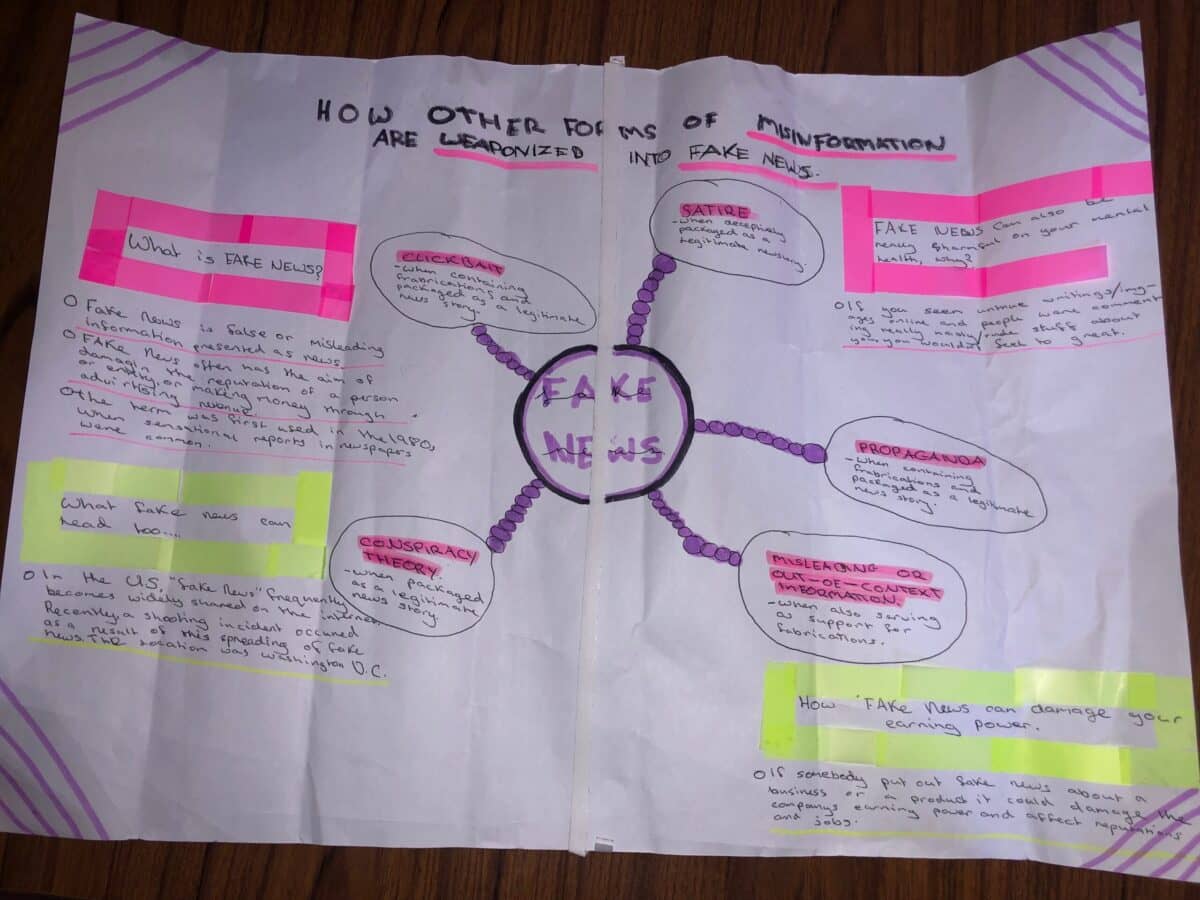 HOW OTHER FORMS OF MISINFORMATION
ARE WEAPONIZED INTO FAKE NEWS.
What is FAKE NEWS?
O Fake News is false or misleading
information presented as news.
O FAKE News often has the aim of
damagin the reputation of a person
or entity, or making money through
advirtising revenue.
O the term was first used in the 1980,
when sensational reports in newspapers
were common.
What fake news can
lead too....
O In the US, "fake News" frequently
becomes widely shared on the internet.
Recently a shooting incident occured
as a result of this spreading of fake
news. The location was Washington D.C.
CLICKBAIT
- when containing
frabrications and
packaged as a legitimate
news story.
SATIRE
- when deceptively
packaged as a
legitimate newstory.
FAKE NEWS
CONSPIRACY
THEORY.
- when packaged
as a legitimate
news story.
PROPAGANDA
- when containing
frabrications and
packaged as a legitimate
news story.
MISLEADING OR
OUT-OF-CONTEXT
INFORMATION.
- when also serving
as support for
fabrications.
FAKE NEWS can also be
really harmful on your mental
health, why?
O If you seem untrue writings/im-
ages online and people were comment
ing really nasty/rude stuff about
you, you wouldnt feel to great.
How 'FAKe News can damage your
earning power.
O If somebody put out fake news about a
business or a product it could damage the
companys earning power and affect reputations
and jobs.